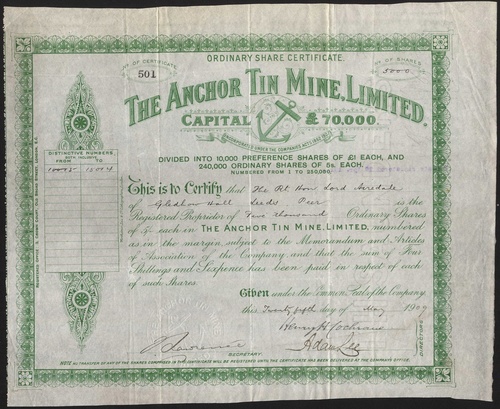 ORDINARY SHARE CERTIFICATE.
No. OF CERTIFICATE
501
No. OF SHARES
5000
THE ANCHOR TIN MINE, LIMITED.
CAPITAL £70,000.
INCORPORATED UNDER THE COMPANIES ACTS
DIVIDED INTO 10,000 PREFERENCE SHARES OF £1 EACH, AND
240,000 ORDINARY SHARES OF 5s. EACH.
NUMBERED FROM 1 TO 250,000.
DISTINCTIVE NUMBERS
BOTH INCLUSIVE
FROM TO
This is to Certify that The Rt Hon Lord Airedale
of Gledhow Hall Leeds Peer is the
Registered Proprietor of Five thousand Ordinary Shares
of 5/- each in THE ANCHOR TIN MINE, LIMITED, numbered
as in the margin subject to the Memorandum and Articles
of Association of the Company, and that the sum of Four
Shillings and Sixpence has been paid in respect of each
of such Shares.
Given under the Common Seal of the Company
this Twenty fifth day of May 1909
Henry H Cochrane
Adam Lee
DIRECTORS
SECRETARY.
NOTE. NO TRANSFER OF ANY OF THE SHARES COMPRISED IN THIS CERTIFICATE WILL BE REGISTERED UNTIL THIS CERTIFICATE HAS BEEN DELIVERED AT THE COMPANY'S OFFICE.